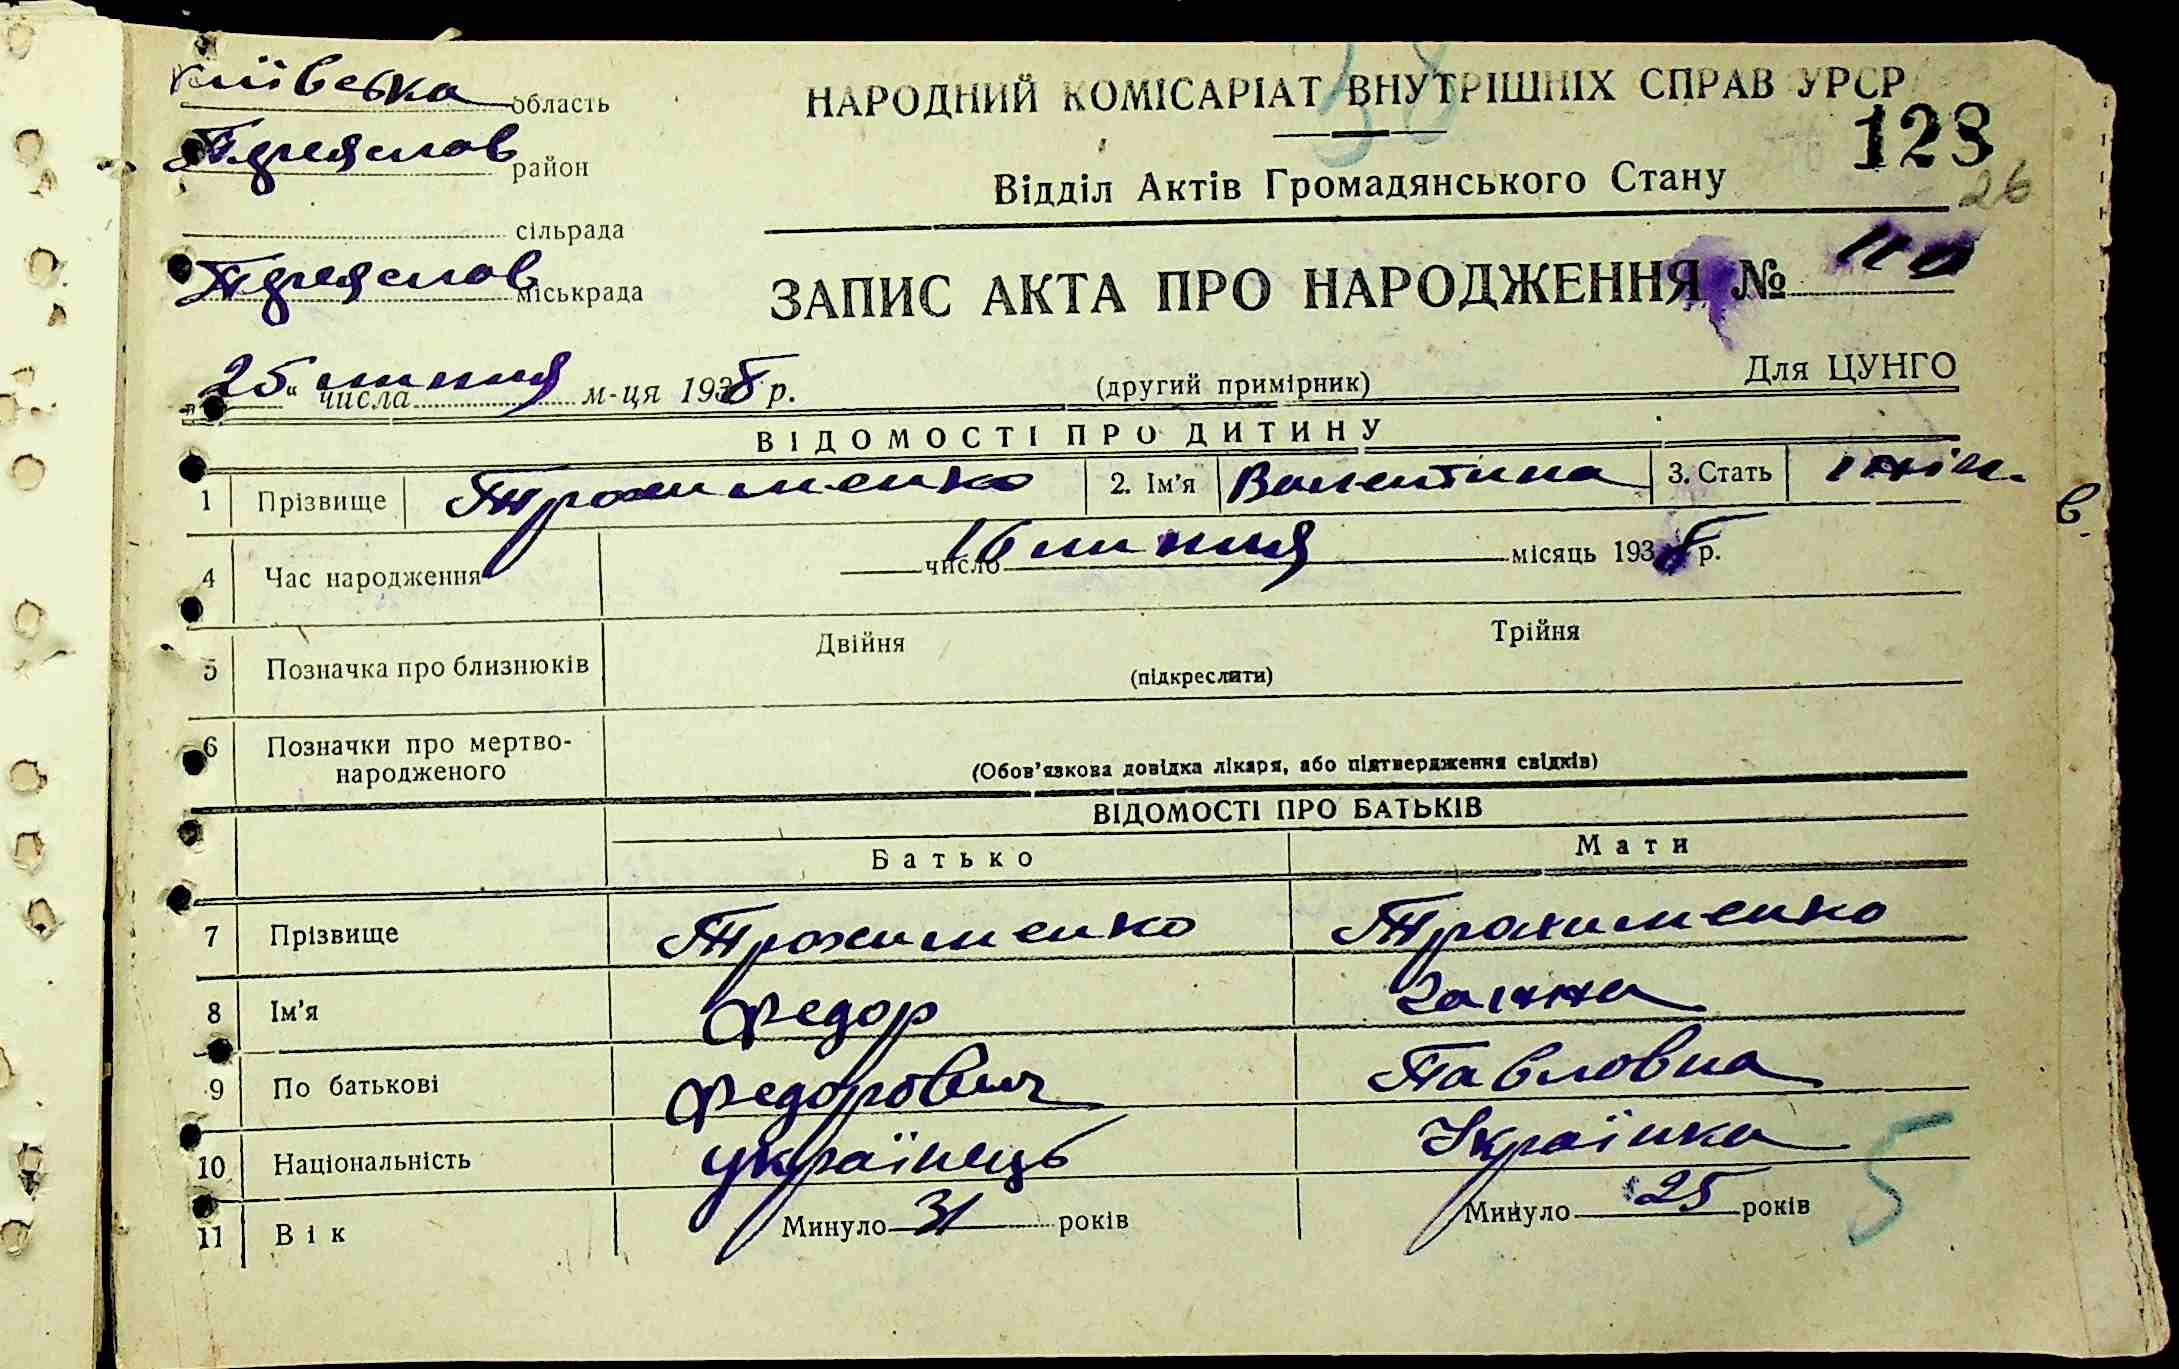 Київська область
38
НАРОДНИЙ КОМІСАРІАТ ВНУТРІШНІХ СПРАВ УРСР
Переяслов район
128
Відділ Актів Громадянського Стану
26
сільрада
Переяслов міськрада
ЗАПИС АКТА ПРО НАРОДЖЕННЯ № 110
"25" числа липня м-ця 1938 р.
(другий примірник)
Для ЦУНГО
ВІДОМОСТІ ПРО ДИТИНУ
1 Прізвище Трохименко 2. Ім'я Валентина 3. Стать жін.
в.
4 Час народження 16 число липня місяць 1938 р.
5 Позначка про близнюків Двійня Трійня
(підкреслити)
6 Позначки про мертво-
народженого
(Обов'язкова довідка лікаря, або підтвердження свідків)
ВІДОМОСТІ ПРО БАТЬКІВ
Батько Мати
7 Прізвище Трохименко Трохименко
8 Ім'я Федор Ганна
9 По батькові Федорович Павловна
10 Національність українець Українка
11 Вік Минуло 31 років Минуло 25 років
5